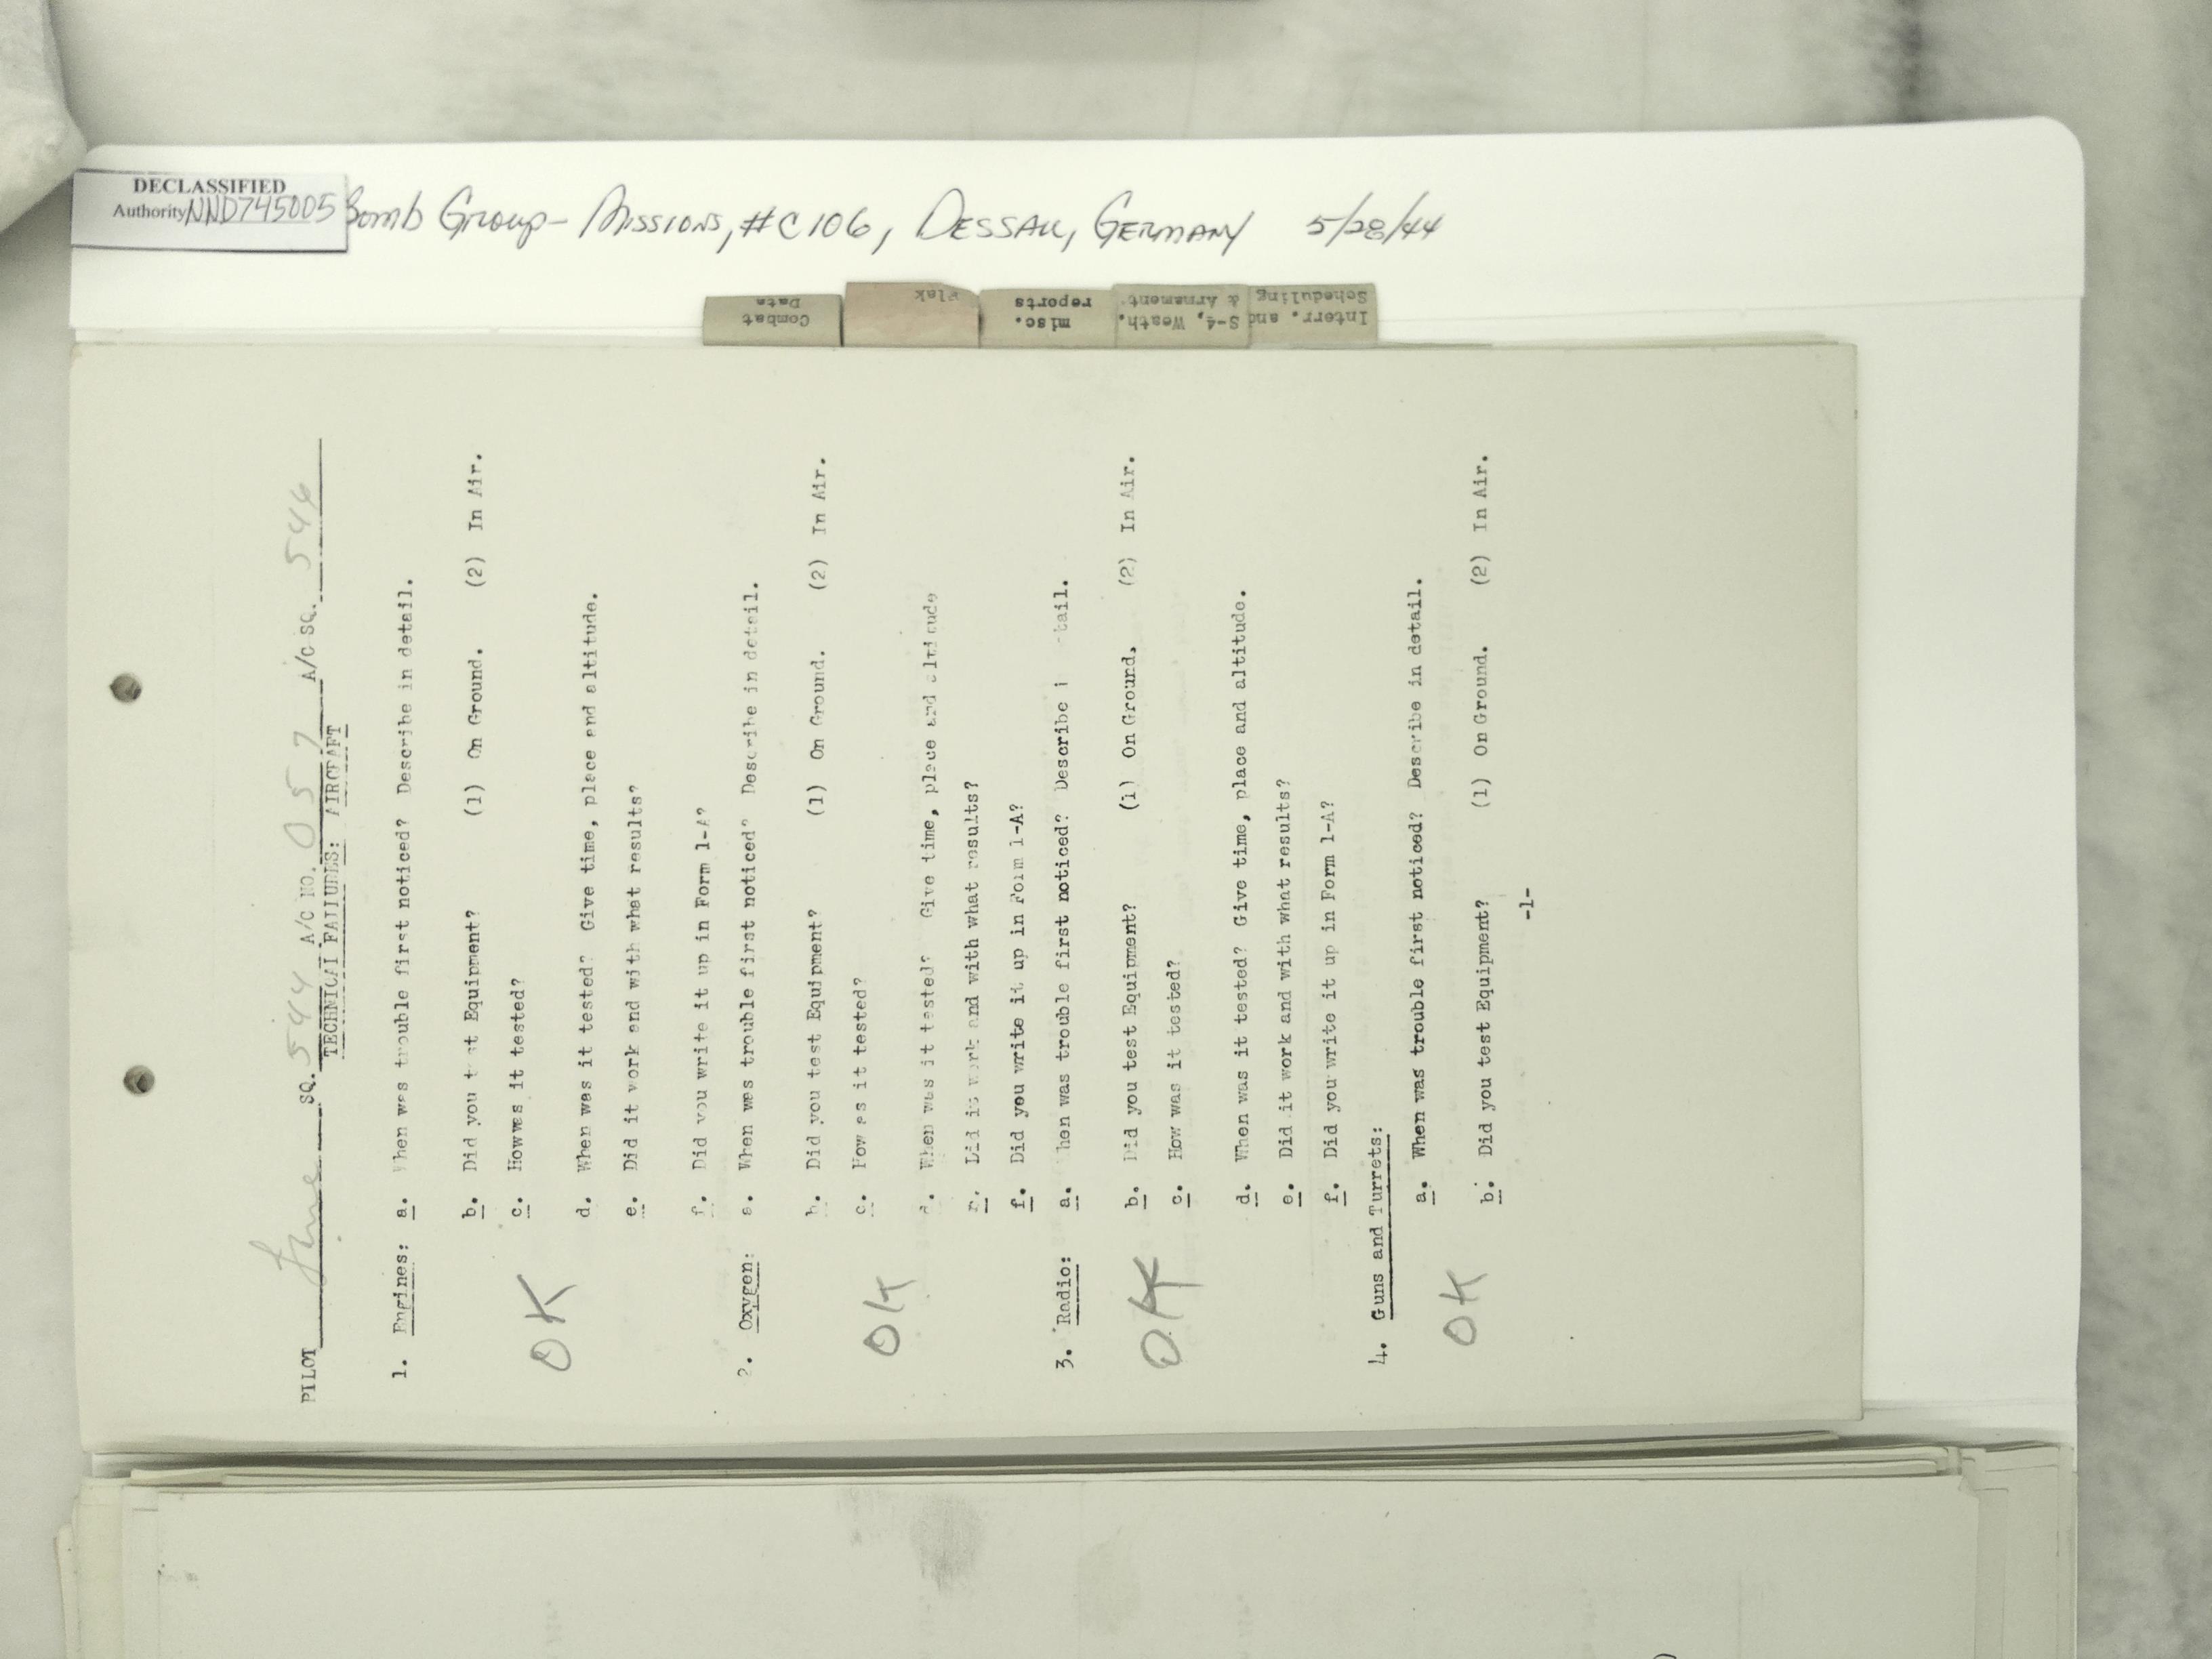 DECLASSIFIED
Authority NND745005
Bomb Group - Missions, #C106, Dessau, Germany 5/28/44
Combat
Data
Flak
misc.
reports
S-4, Weath.
& Armament
Interr. and
Scheduling
PILOT SQ. 544 A/C NO. 057 A/C SQ. 544
TECHNICAL FAILURES: AIRCRAFT
1. Engines: a. When was trouble first noticed? Describe in detail.
b. Did you test Equipment? (1) On Ground. (2) In Air.
c. How was it tested?
OK
d. When was it tested? Give time, place and altitude.
e. Did it work and with what results?
f. Did you write it up in Form 1-A?
2. Oxygen: a. When was trouble first noticed" Describe in detail.
b. Did you test Equipment? (1) On Ground. (2) In Air.
c. How as it tested?
OK
d. When was it tested? Give time, place and altitude
e. Did it work and with what results?
f. Did you write it up in Form 1-A?
3. Radio: a. When was trouble first noticed? Describe i tail.
b. Did you test Equipment? (1) On Ground. (2) In Air.
c. How was it tested?
OK
d. When was it tested? Give time, place and altitude.
e. Did it work and with what results?
f. Did you write it up in Form 1-A?
4. Guns and Turrets:
a. When was trouble first noticed? Describe in detail.
OK
b. Did you test Equipment? (1) On Ground. (2) In Air.
-1-